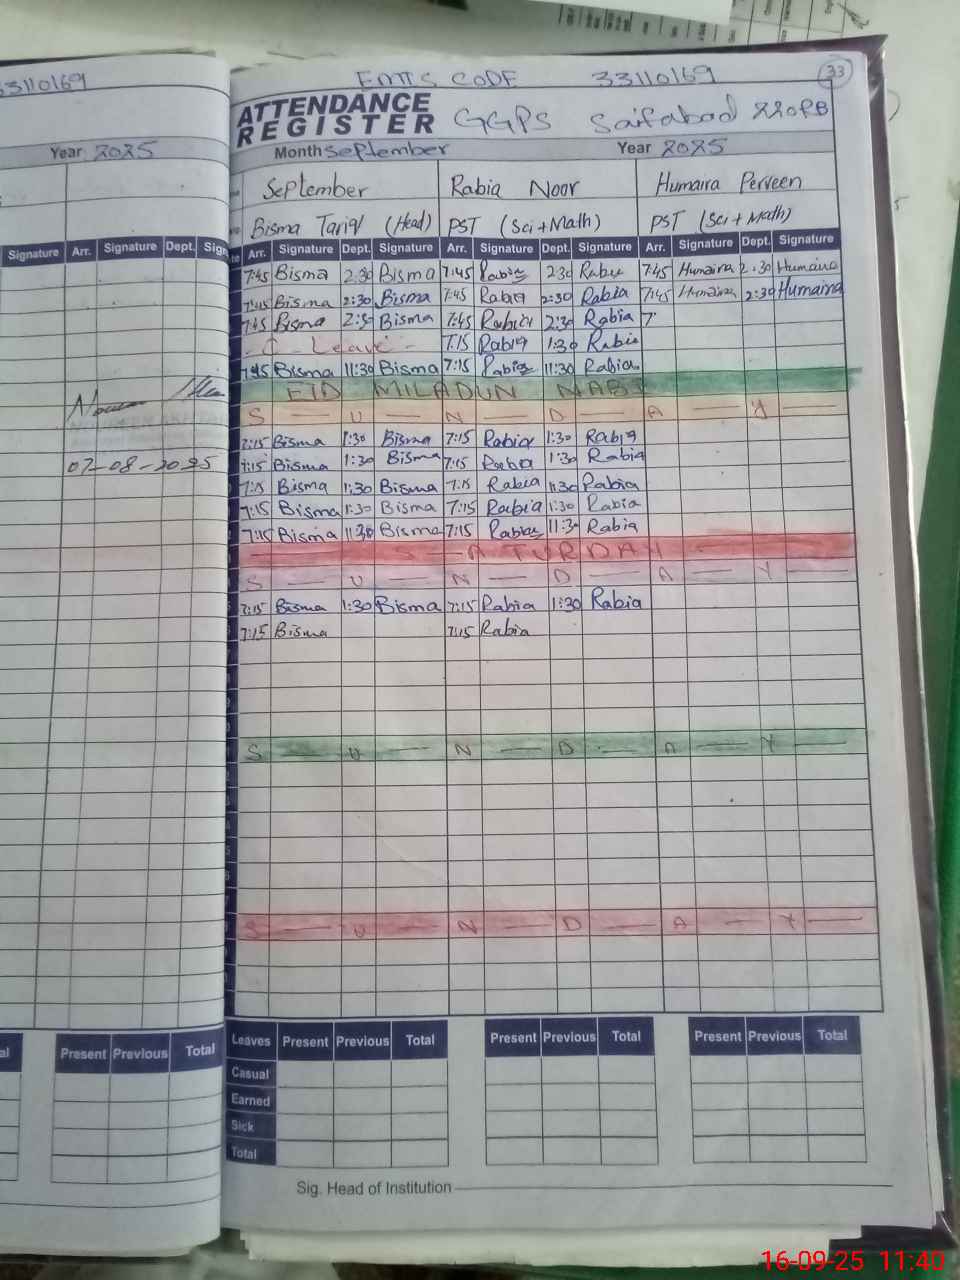 33110169
Year 2025
Signature Arr. Signature Dept.
07-08-2025
Present Previous Total
EMIS CODE 33110169 33
ATTENDANCE REGISTER GGPS Saifabad 220RB
Month September Year 2025
September Rabia Noor Humaira Perveen
Bisma Tariq (Head) PST (Sci+Math) PST (Sci+Math)
Arr. Signature Dept. Signature Arr. Signature Dept. Signature Arr. Signature Dept. Signature
7:45 Bisma 2:30 Bisma 7:45 Rabia 2:30 Rabia 7:45 Humaira 2:30 Humaira
7:45 Bisma 2:30 Bisma 7:45 Rabia 2:30 Rabia 7:45 Humaira 2:30 Humaira
7:45 Bisma 2:30 Bisma 7:45 Rabia 2:30 Rabia 7
- C - Leave - 7:15 Rabia 1:30 Rabia
7:45 Bisma 11:30 Bisma 7:15 Rabia 11:30 Rabia
EID MILADUN NABI
S — U — N — D — A — Y —
7:15 Bisma 1:30 Bisma 7:15 Rabia 1:30 Rabia
7:15 Bisma 1:30 Bisma 7:15 Rabia 1:30 Rabia
7:15 Bisma 1:30 Bisma 7:15 Rabia 1:30 Rabia
7:15 Bisma 1:30 Bisma 7:15 Rabia 1:30 Rabia
7:15 Bisma 11:30 Bisma 7:15 Rabia 11:30 Rabia
S — A TURDAY
S — U — N — D — A — Y —
7:15 Bisma 1:30 Bisma 7:15 Rabia 1:30 Rabia
7:15 Bisma 7:15 Rabia
S — U — N — D — A — Y —
S — U — N — D — A — Y —
Leaves Present Previous Total Present Previous Total Present Previous Total
Casual
Earned
Sick
Total
Sig. Head of Institution
16-09-25 11:40